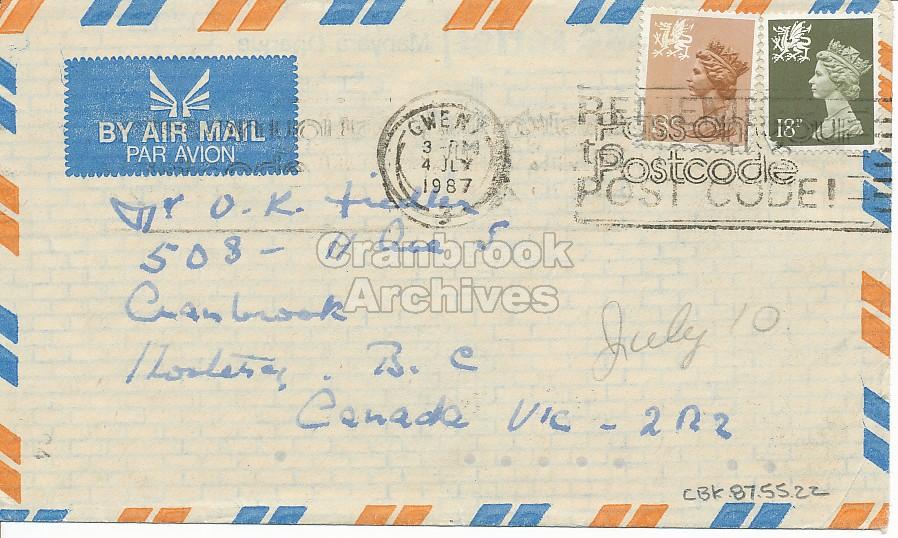 BY AIR MAIL
PAR AVION
GWENT
3-PM
4 JLY
1987
18P
18P
REMEMBER
Pass on your
to
Postcode
POST CODE!
O. K.
508 - 11 Ave S
Cranbrook
B. C
Canada V1C - 2R2
July 10
Cranbrook
Archives
CBK.87.55.22